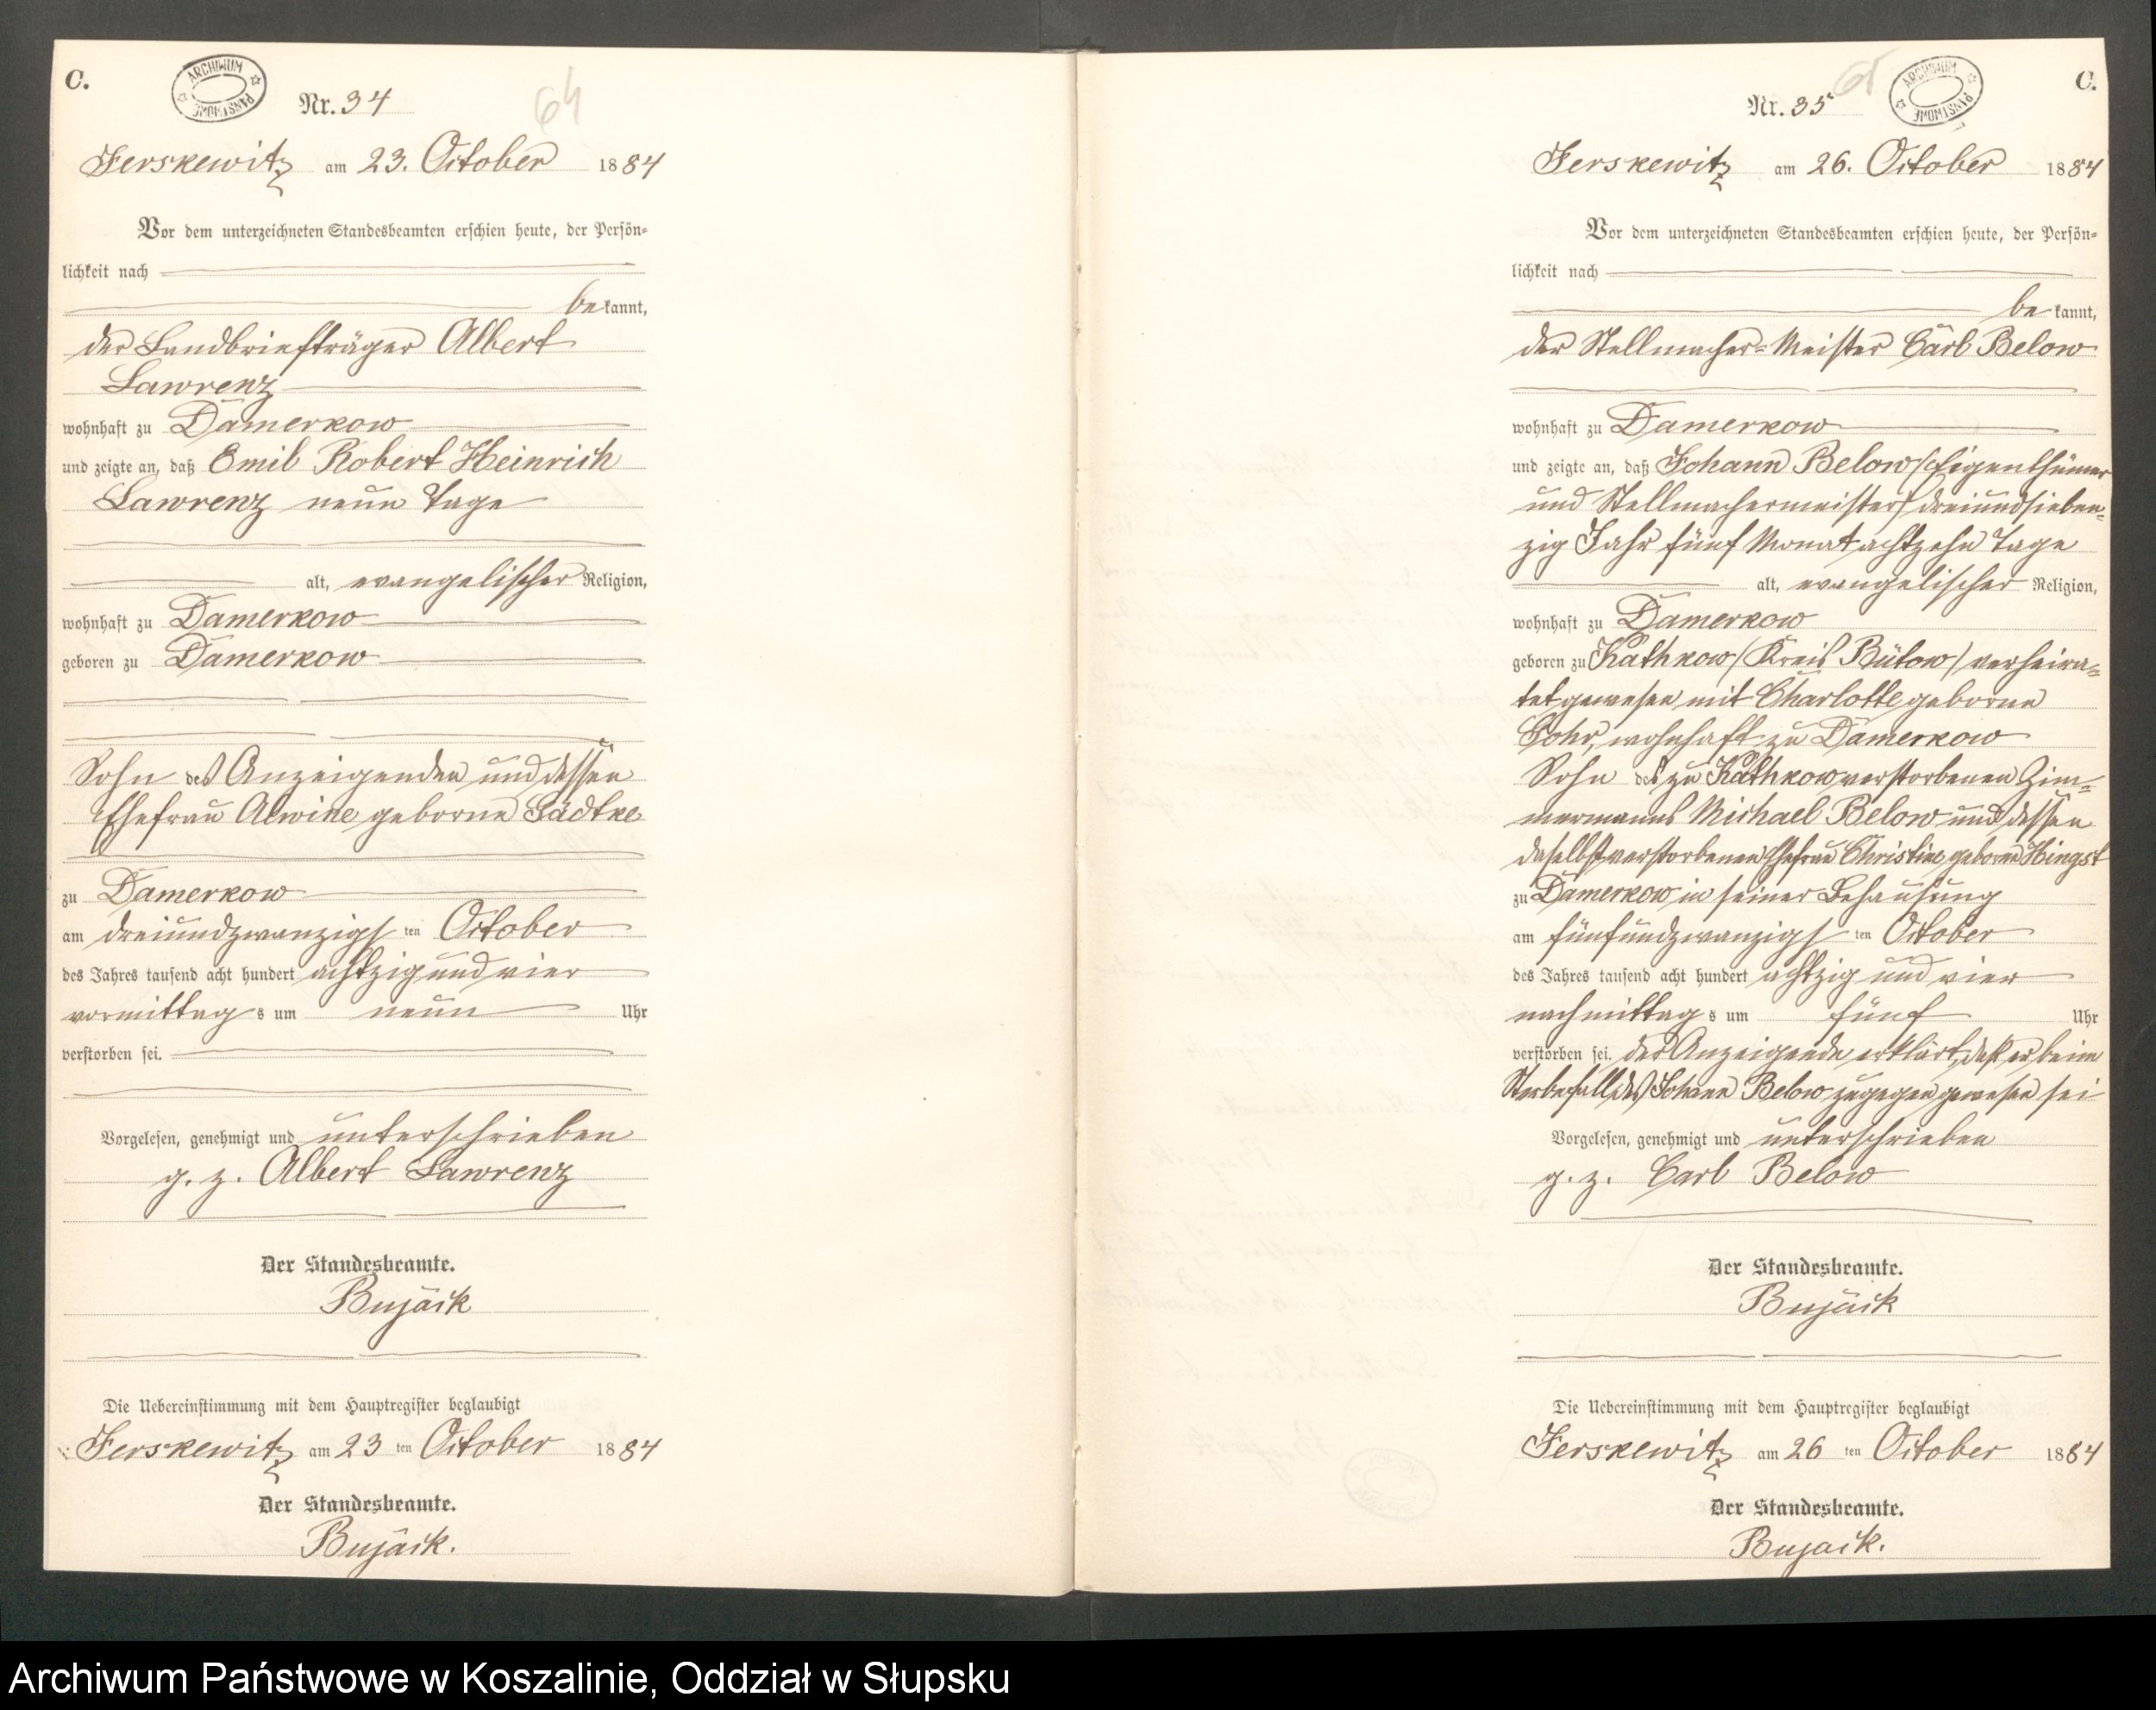 C.
ARCHIWUM PAŃSTWOWE
Nr. 34
64
Jerskewitz am 23. October 1884
Vor dem unterzeichneten Standesbeamten erschien heute, der Persön-
lichkeit nach
bekannt,
der Landbriefträger Albert
Lawrenz
wohnhaft zu Damerkow
und zeigte an, daß Emil Robert Heinrich
Lawrenz neun Tage
alt, evangelischer Religion,
wohnhaft zu Damerkow
geboren zu Damerkow
Sohn des Anzeigenden und dessen
Ehefrau Alwine geborne Gädtke
zu Damerkow
am dreiundzwanzigsten October
des Jahres tausend acht hundert achtzig und vier
vormittags um neun Uhr
verstorben sei.
Vorgelesen, genehmigt und unterschrieben
g. z. Albert Lawrenz
Der Standesbeamte.
Bujack
Die Uebereinstimmung mit dem Hauptregister beglaubigt
Jerskewitz am 23ten October 1884
Der Standesbeamte.
Bujack.
65
ARCHIWUM PAŃSTWOWE
C.
Nr. 35
Jerskewitz am 26. October 1884
Vor dem unterzeichneten Standesbeamten erschien heute, der Persön-
lichkeit nach
bekannt,
der Stellmacher-Meister Carl Below
wohnhaft zu Damerkow
und zeigte an, daß Johann Below /Eigenthümer
und Stellmachermeister/ dreiundsieben-
zig Jahr fünf Monat achtzehn Tage
alt, evangelischer Religion,
wohnhaft zu Damerkow
geboren zu Kathkow /Kreis Bütow/ verheira-
tet gewesen mit Charlotte geborne
Gohr, wohnhaft zu Damerkow
Sohn des zu Kathkow verstorbenen Zim-
mermanns Michael Below und dessen
daselbst verstorbenen Ehefrau Christine geborne Hingst
zu Damerkow in seiner Behausung
am fünfundzwanzigsten October
des Jahres tausend acht hundert achtzig und vier
nachmittags um fünf Uhr
verstorben sei. Der Anzeigende erklärt, daß er beim
Sterbefall des Johann Below zugegen gewesen sei
Vorgelesen, genehmigt und unterschrieben
g. z. Carl Below
Der Standesbeamte.
Bujack
Die Uebereinstimmung mit dem Hauptregister beglaubigt
Jerskewitz am 26ten October 1884
Der Standesbeamte.
Bujack.
Archiwum Państwowe w Koszalinie, Oddział w Słupsku